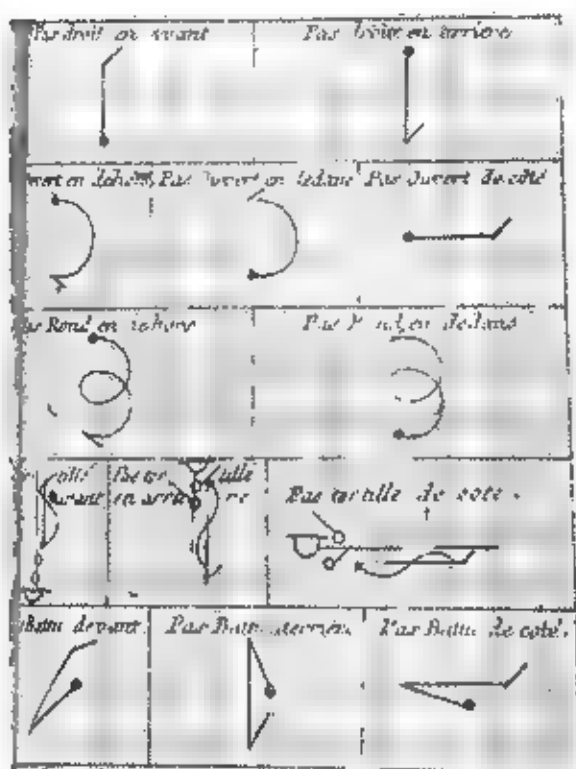 Pas droit en avant
Pas droit en arriere
ouvert en dehors
Pas Ouvert en dedans
Pas Ouvert de côté
Pas Rond en dehors
Pas Rond en dedans
avant
Pas tortillé
en arriere
Pas tortillé de côté.
Battu devant
Pas Battu derriere
Pas Battu de coté.